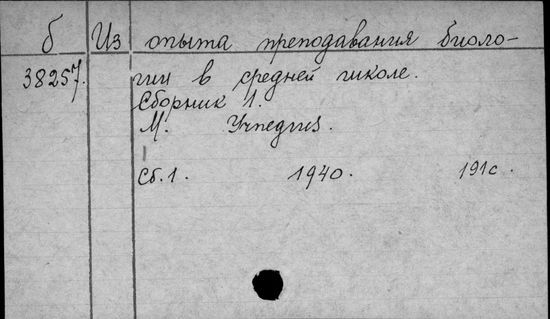 б Из опыта преподавания биоло-
38257. гии в средней школе.
Сборник 1.
М. Учпедгиз.
Сб. 1. 1940. 191с.